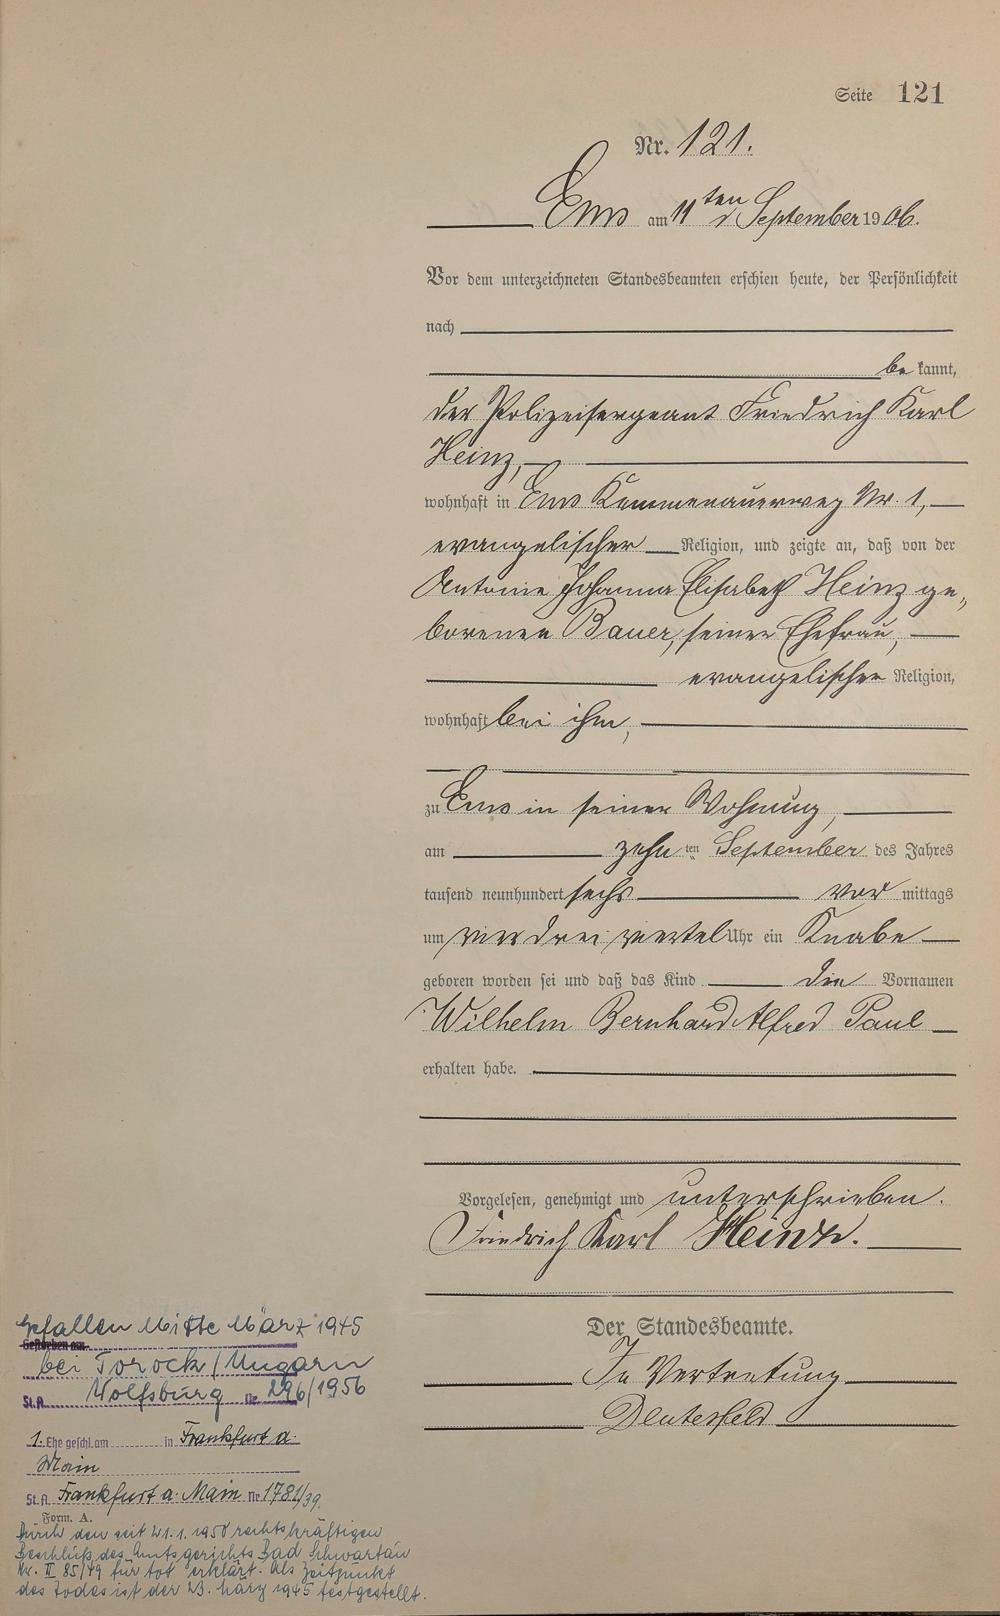 Seite 121
Nr. 121.
Ems am 11ten September 1906.
Vor dem unterzeichneten Standesbeamten erschien heute, der Persönlichkeit
nach
bekannt,
der Polizeisergeant Friedrich Karl
Heinz,
wohnhaft in Ems Kemmenauerweg Nr. 1,
evangelischer Religion, und zeigte an, daß von der
Antonie Johanna Elisabeth Heinz ge-
borenen Bauer, seiner Ehefrau,
evangelischer Religion,
wohnhaft bei ihm,
zu Ems in seiner Wohnung,
am zehnten September des Jahres
tausend neunhundert sechs vor mittags
um vier drei viertel Uhr ein Knabe
geboren worden sei und daß das Kind die Vornamen
Wilhelm Bernhard Alfred Paul
erhalten habe.
Vorgelesen, genehmigt und unterschrieben.
Friedrich Karl Heinz.
Der Standesbeamte.
In Vertretung
Gefallen Mitte März 1945
Gestorben am
bei Torock/Ungarn
St.A. Wolfsburg Nr. 296/1956
1. Ehe geschl. am in Frankfurt a.
Main
St.A. Frankfurt a. Main Nr 1781/39.
Form. A.
Durch den seit 21.1.1950 rechtskräftigen
Beschluß des Amtsgerichts Bad Schwartau
Nr. II 85/49 für tot erklärt. Als Zeitpunkt
des Todes ist der 23. März 1945 festgestellt.